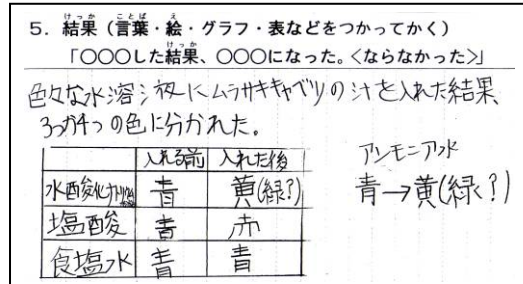 5. 結果(言葉・絵・グラフ・表などをつかってかく)
「○○○した結果、○○○になった。<ならなかった>」
色々な水溶液にムラサキキャベツの汁を入れた結果
3つか4つの色に分かれた。
入れる前 入れた後
水酸化ナトリウム 青 黄(緑?)
塩酸 青 赤
食塩水 青 青
アンモニア水
青→黄(緑?)